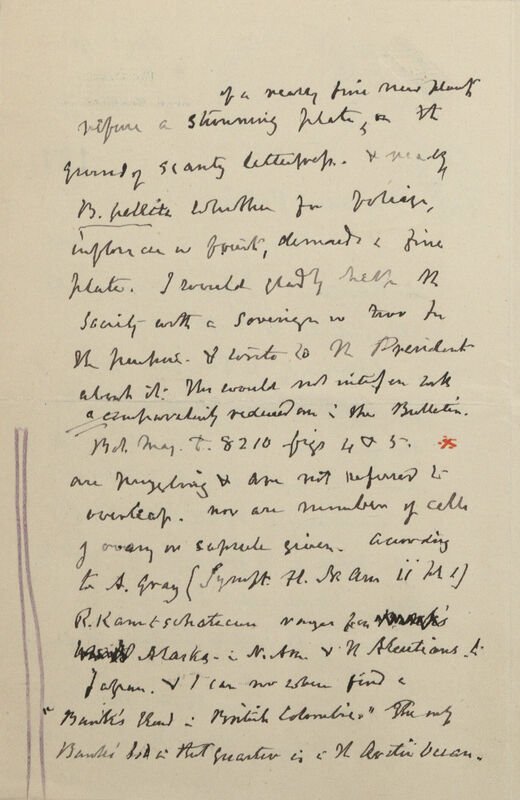 of a really fine new plant
refuse a stunning plate, on the
ground of scanty letterpress. & really
B. pellita whether for foliage,
inflorescence or fruit, demands a fine
plate. I would gladly help the
Society with a Sovereign or two for
the purpose. & write to the President
about it. This would not interfere with
a comparatively reduced one in the Bulletin.
Bot. Mag. t. 8210 figs 4 & 5.
are puzzling & are not referred to
overleaf. nor are number of cells
of ovary or capsule given. According
to A. Gray (Synopt. Fl. N. Am ii pt 1)
R. Kamtschaticum ranges from
Alaska in N. Am. & N Aleutians to
Japan. & I can no where find a
"Bank's Head in British Colombia." The only
Banks' in that quarter is in the Arctic Ocean.